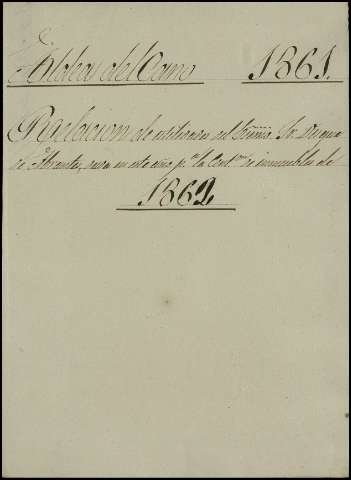 Aldea del Cano 1861.
Relacion de utilidades del Exmo. Sr. Duque
de Abrantes, para en este año pa. la Conton. de inmuebles de
1862